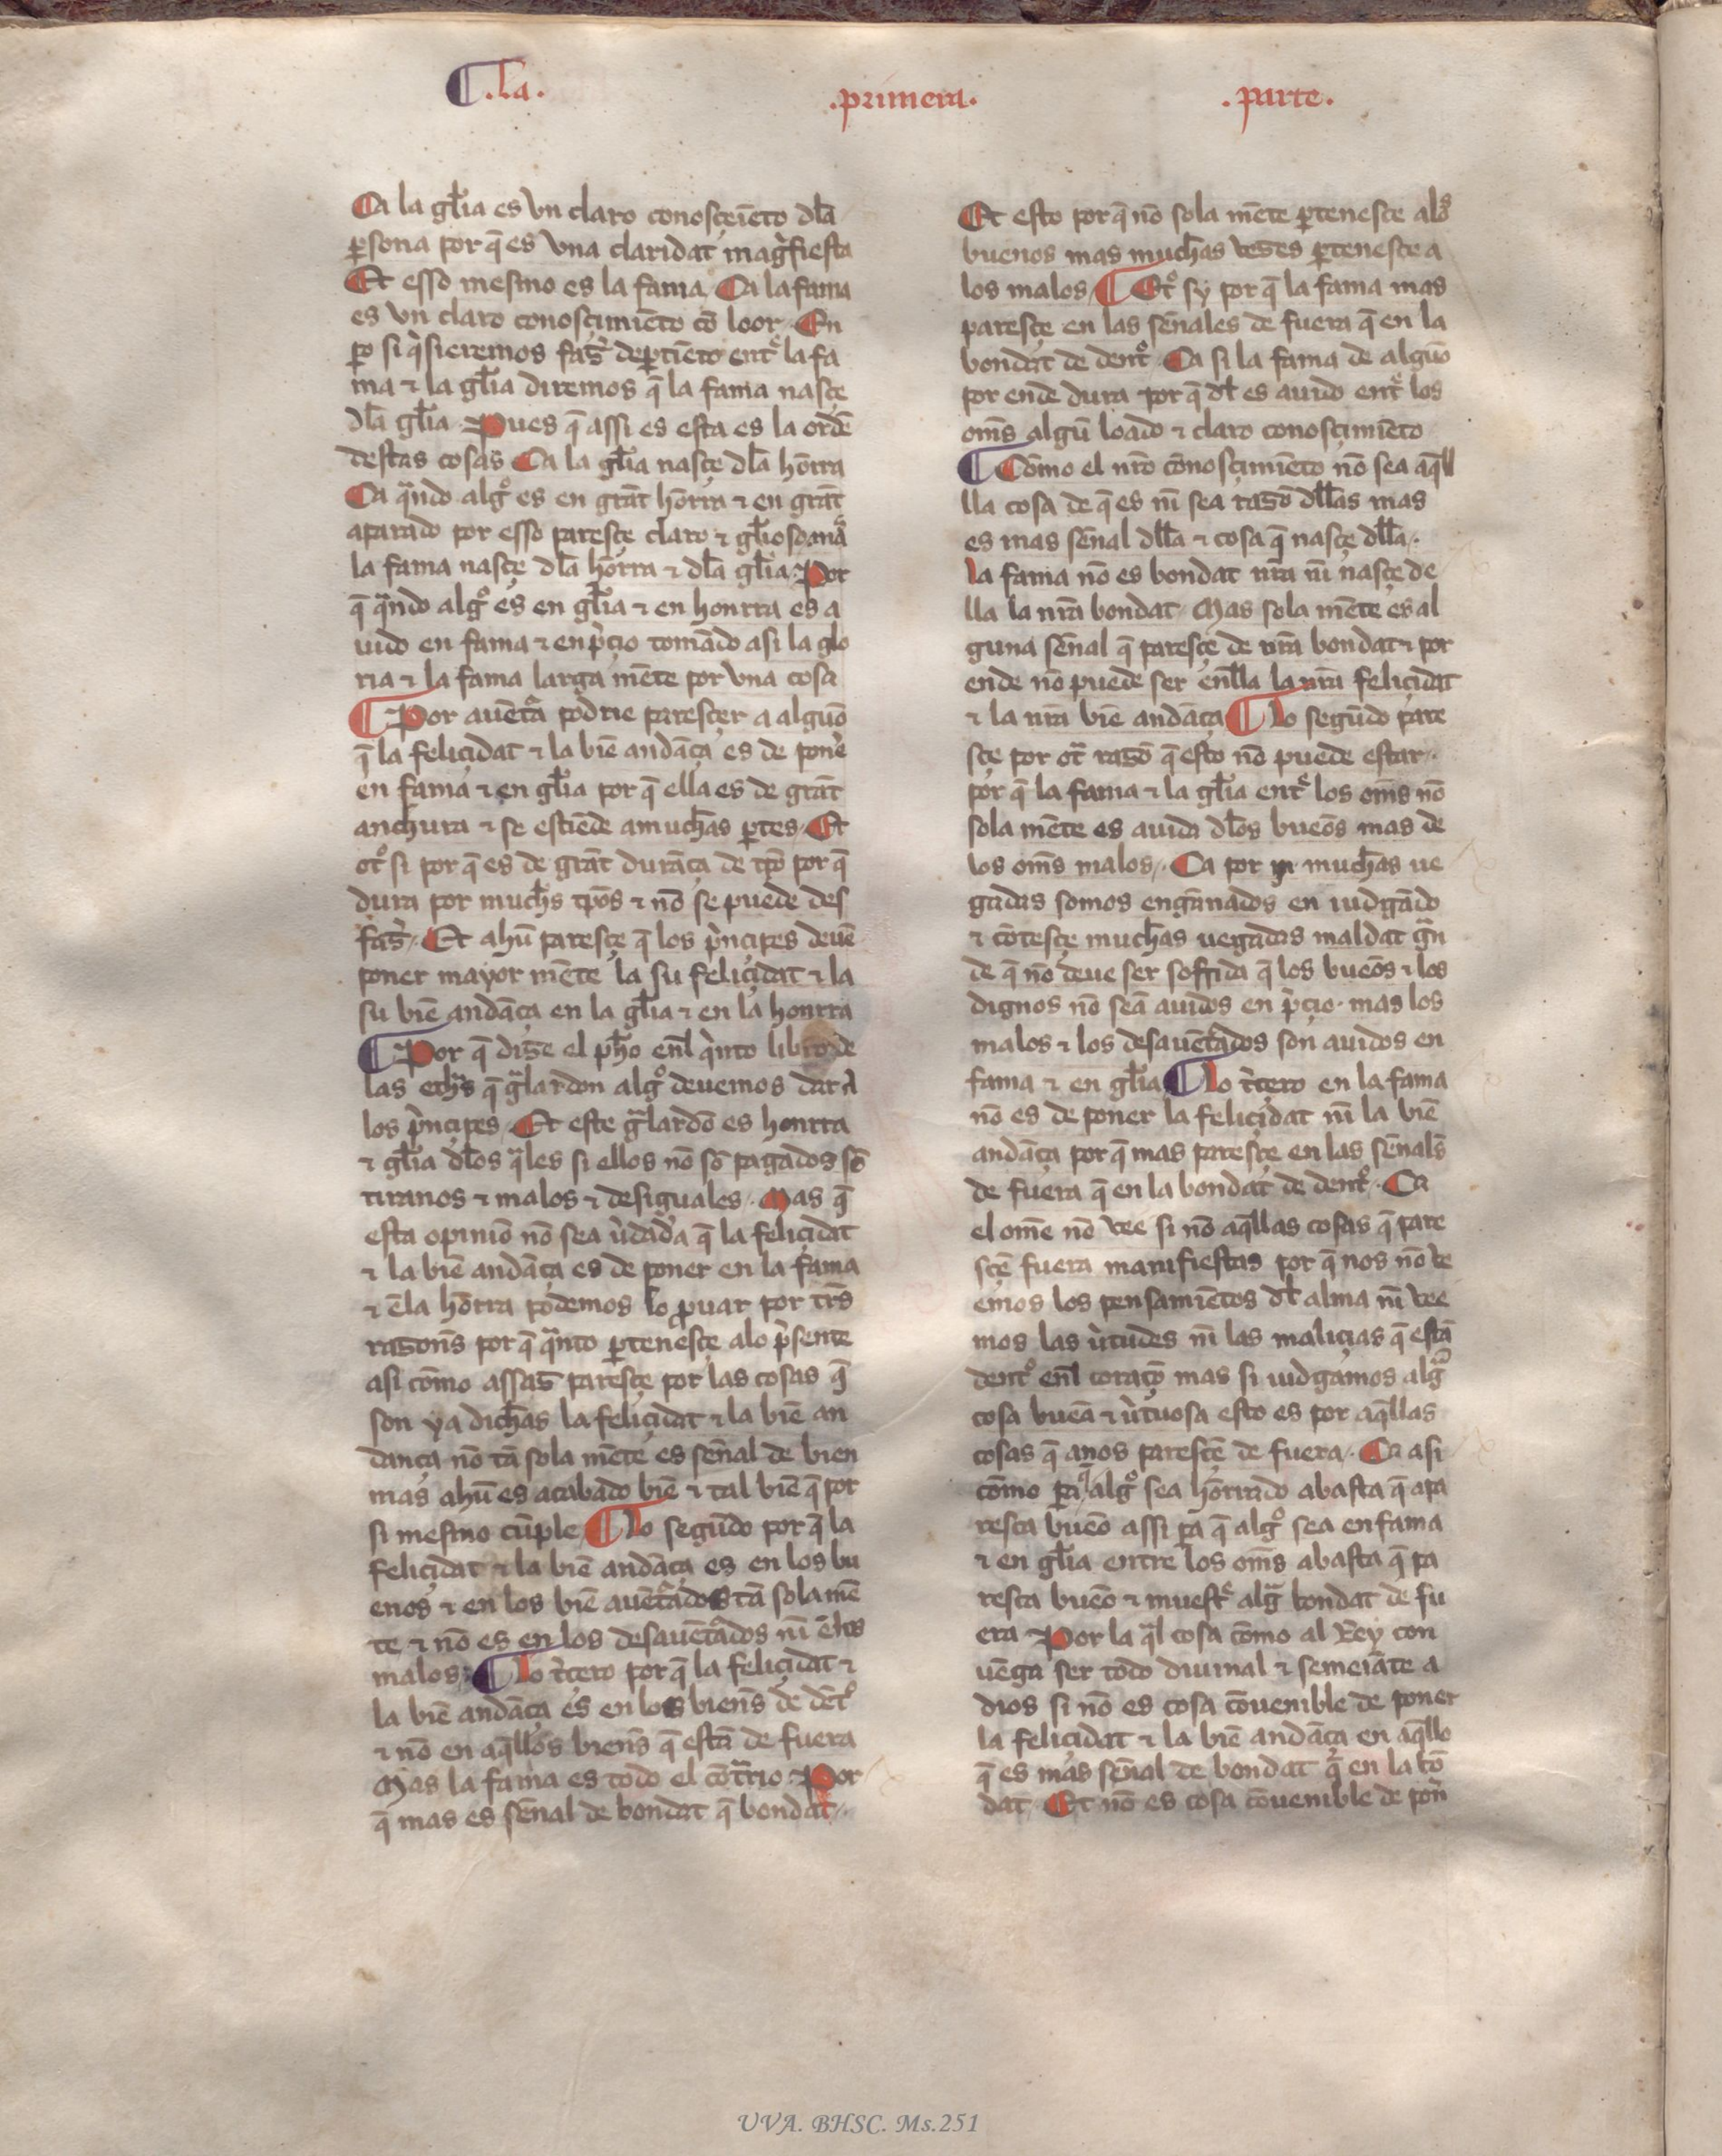 ¶ .la. .primera. .parte.
Ca la gl̃ia es vn claro conosçiēto dl̃a
ꝑsona por q̄ es vna claridat magñfiesta
Et esso mesmo es la fama Ca la fama
es vn claro conosçimiēto cō loor. En
ꝑo si q̇sieremos fas̃ deꝑtiēto entͤ la fa
ma ⁊ la gl̃ia diremos q̄ la fama nasçe
dl̃a gl̃ia. Pues q̄ assi es esta es la ordē
destas cosas Ca la gl̃ia nasçe dl̃a hōrra
Ca qͣndo algͦ es en grāt hōrra ⁊ en grāt
aparado por esso paresçe claro ⁊ gl̃ioso
la fama nasçe dl̃a hōrra ⁊ dl̃a gl̃ia. Por
q̄ qͣndo algͦ es en gl̃ia ⁊ en honrra es a
uido en fama ⁊ en p̀çio tomādo asi la glo
ria ⁊ la fama larga mēte por vna cosa
¶ Por auētͣa podrie paresçer a alguō
q̄ la feliçidat ⁊ la biē andāça es de pon̄e
en fama ⁊ en gl̃ia por q̄ ella es de grāt
anchura ⁊ se estiēde a much̄as ꝑtes. Et
otͦ si por q̄ es de grāt durāça de tp̄o por q̄
dura por much̄s tp̄os ⁊ nō se puede des
fas̃. Et ahū paresçe q̄ los p̀nçipes deuē
poner mayor mēte la su feliçidat ⁊ la
su biē andāça en la gl̃ia ⁊ en la honrra
¶ Por q̄ dise el ph̄o enl̄ q̇nto libro de
las ech̄s q̄ gͣlardon algͦ deuemos dar a
los p̀nçipes. Et este gͣlardō es honrra
⁊ gl̃ia dl̃os qͣles si ellos nō sō pagados sō
tiranos ⁊ malos ⁊ desiguales. Mas q̄
esta opiniō nō sea ùdadͣa q̄ la feliçidat
⁊ la biē andāça es de poner en la fama
⁊ ēla hōrra podemos lo ꝓuar por tr̄s
rasonēs por q̄ qͣnto ꝑtenesçe alo p̀sente
asi cōmo assas paresçe por las cosas q̄
son ya dich̄as la feliçidat ⁊ la biē an
dança nō tā sola mēte es señal de bien
mas ahū es acabado biē ⁊ tal biē q̄ por
si mesmo cūple ¶ Lo segūdo por q̄ la
feliçidat ⁊ la biē andāça es en los bu
enos ⁊ en los biē auētͣados tā sola mē
te ⁊ nō es en los desauētͣados nī ēlos
malos ¶ Lo t̀çero por q̄ la feliçidat ⁊
la biē andāça es en los bienēs de dētͦ
⁊ nō en aq̄llos bienēs q̄ estā de fuera
Mas la fama es todo el cōtͣrio. Por
q̄ mas es señal de bondat q̄ bondat.
Et esto por q̄ nō sola mēte ꝑtenesçe alos
buenos mas much̄as veses ꝑtenesçe a
los malos ¶ Etͦ sy por q̄ la fama mas
paresçe en las señales de fuera q̄ en la
bondat de dentͦ. Ca si la fama de alguō
por ende dura por q̄ dl̃ es auido entͤ los
om̄s algū loado ⁊ claro conosçimiēto
¶ Cōmo el nr̄o cōnosçimiēto nō sea aq̄ll
lla cosa de q̄ es nī sea rasō dll̃as mas
es mas señal dll̃a ⁊ cosa q̄ nasçe dll̃a.
la fama nō es bondat nr̄a nī nasçe de
lla la nr̄a bondat. Mas sola mēte es al
guna señal q̄ paresçe de nr̄a bondat ⁊ por
ende nō puede ser enll̃a la nr̄a feliçidat
⁊ la nr̄a biē andāça ¶ Lo segūdo pare
sçe por otͣ rasō q̄ esto nō puede estar.
por q̄ la fama ⁊ la gl̃ia entͤ los om̄s nō
sola mēte es auida dl̃os bueōs mas de
los om̄s malos. Ca por much̄as ve
gadas somos engānados en iudgādo
⁊ cōtesçe much̄as uegadas maldat gͣn
de q̄ nō deue ser soffrida q̄ los bueōs ⁊ los
dignos nō seā auidos en p̀çio. mas los
malos ⁊ los desauētͣados son auidos en
fama ⁊ en gl̃ia ¶ Lo t̀çero en la fama
nō es de poner la feliçidat nī la biē
andāça por q̄ mas paresçe en las señals̄
de fuera q̄ en la bondat de dentͦ. Ca
el ome nō vee si nō aq̄llas cosas q̄ pare
sçē fuera manifiestas por q̄ nos nō ve
emos los pensamiētos dl̃ alma nī vee
mos las ùtudes nī las maliçias q̄ estā
dentͦ enl̄ coraçō mas si iudgamos algͣ
cosa buēa ⁊ ùtuosa esto es por aq̄llas
cosas q̄ anos paresçē de fuera. Ca asi
cōmo ꝑa q̄ algͦ sea hōrrado abasta q̄ apa
resca bueō assi ꝑa q̄ algͦ sea en fama
⁊ en gl̃ia entre los om̄s abasta q̄ pa
resca bueō ⁊ muestͤ algͣ bondat de fu
era Por la qͣl cosa cōmo al Rey con
uēga ser todo diuinal ⁊ semeiāte a
dios si nō es cosa cōuenible de poner
la feliçidat ⁊ la biē andāça en aq̄llo
q̄ es mas señal de bondat q̄ en la bō
dat. Et nō es cosa cōuenible de pon̄
UVA. BHSC. Ms.251